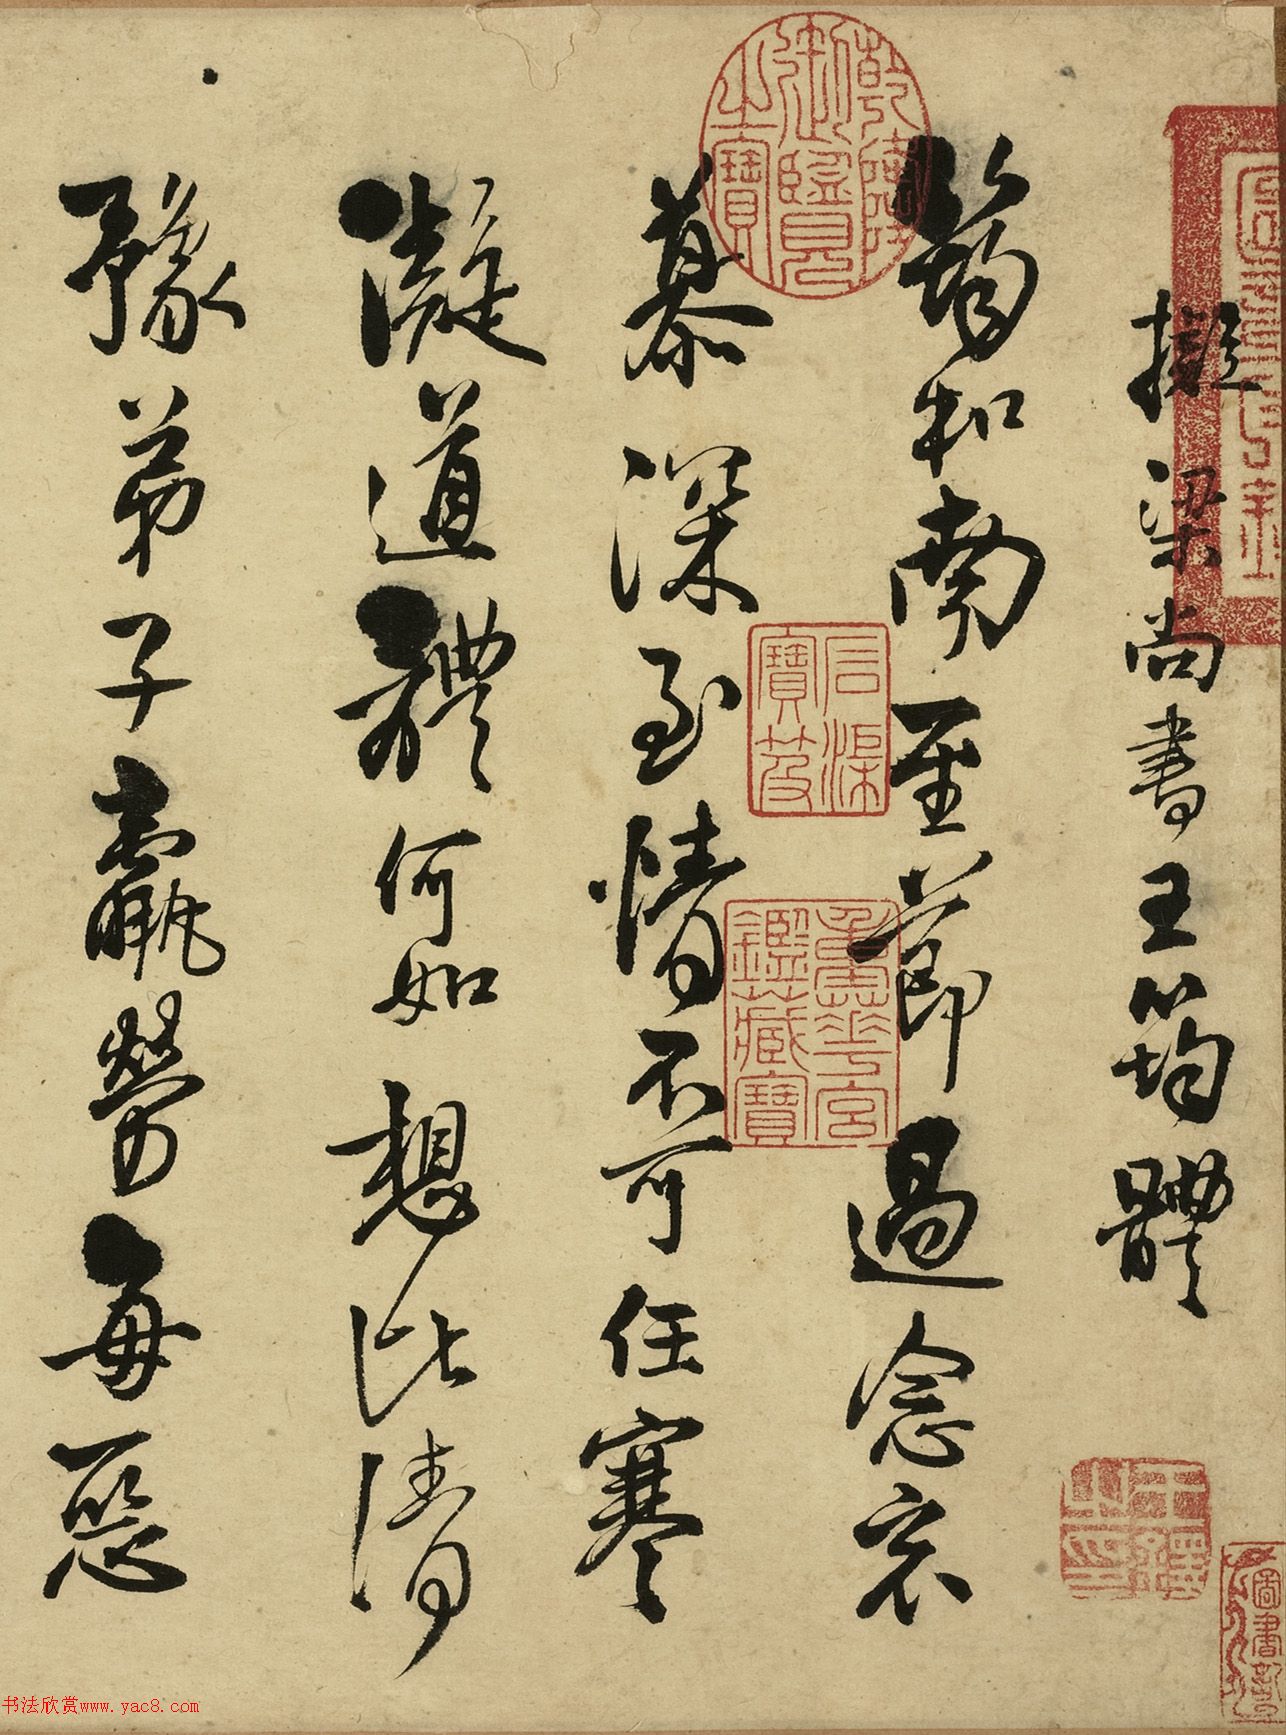 擬梁尚書王筠體
筠和南至節過念哀
慕深至情不可任寒
凝道體何如想比清
豫弟子羸勞每惡
乾隆御覽之寶
石渠寶笈
重華宮鑑藏寶
王鐸之印
书法欣赏www.yac8.com